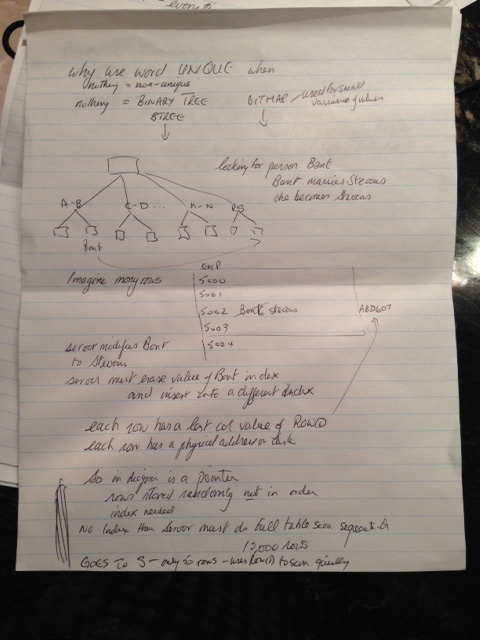 why use word UNIQUE when
nothing = non-unique
nothing = BINARY TREE
BTREE
BITMAP / used for small
variance of values
looking for person Bont
Bont marries Stevens
she becomes Stevens
A-B C-D... M-N R-S
Bont
EMP
Imagine many rows
5000
5001
5002 Bont Stevens
5003
5004
ABDGOT
server modifies Bont
to Stevens
server must erase value of Bont index
and insert into a different index
each row has a last col value of ROWID
each row has a physical address on disk
So in diagram is a pointer
rows stored randomly not in order
index needed
No Index then server must do full table scan
12,000 rows
GOES TO S - only 50 rows - uses Row ID to scan quickly